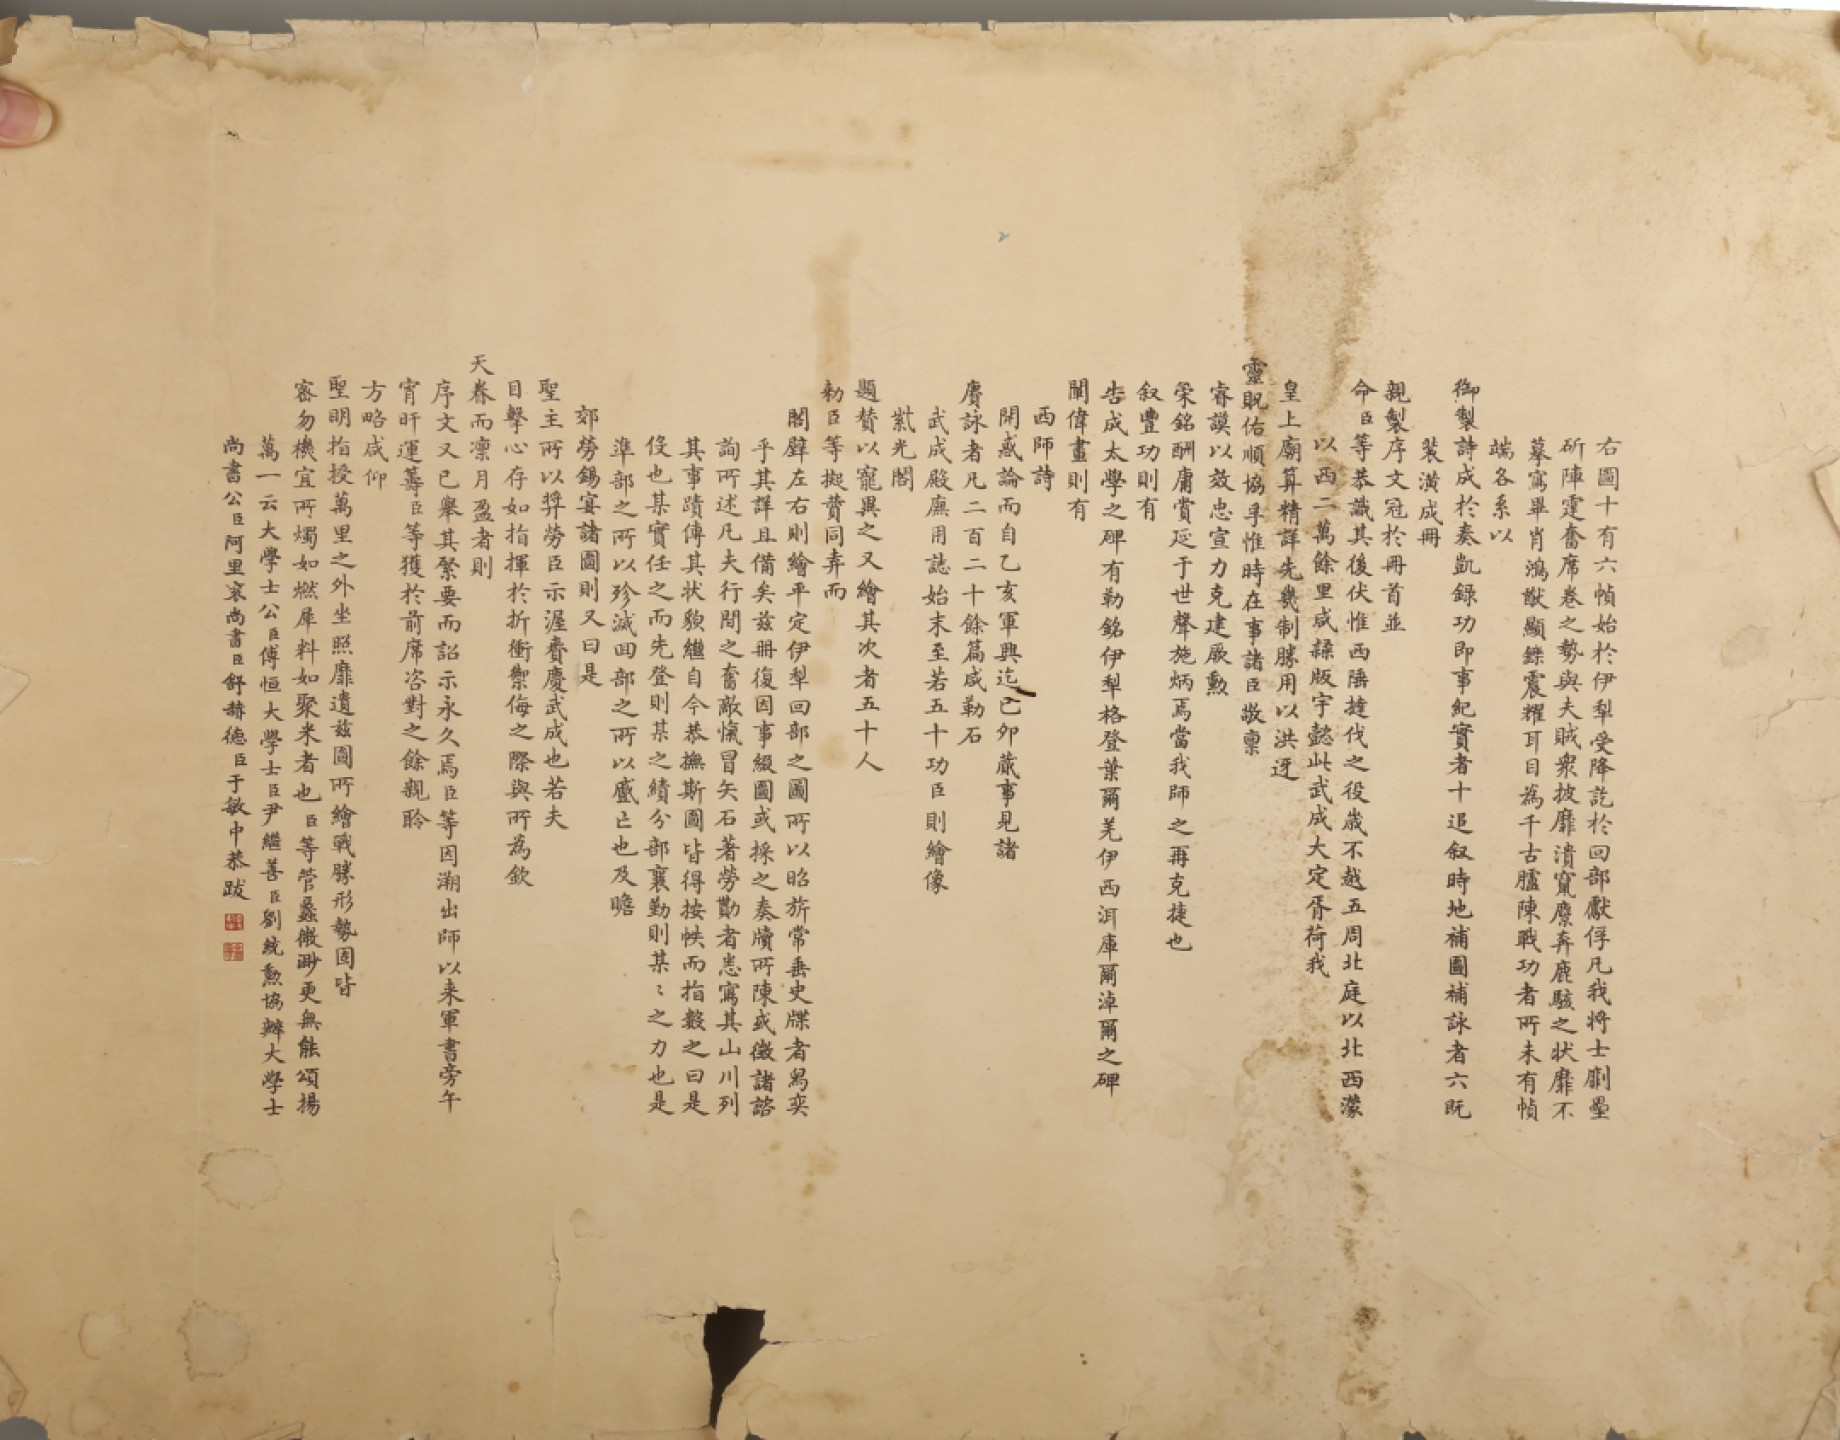 右圖十有六幀始於伊犁受降訖於回部獻俘凡我將士劘壘
斫陣霆奮席卷之勢與夫賊衆披靡潰竄麇奔鹿駭之状靡不
摹寫畢肖鴻猷顯鑠震耀耳目為千古臚陳戰功者所未有幀
端各系以
御製詩成於奏凱錄功即事紀實者十追叙時地補圖補詠者六既
装潢成冊
親製序文冠於冊首並
命臣等恭識其後伏惟西陲撻伐之役歲不越五周北庭以北西濛
以西二萬餘里咸隸版宇懿此武成大定胥荷我
皇上廟算精詳先幾制勝用以洪迓
靈貺佑順協孚惟時在事諸臣敬禀
睿謨以效忠宣力克建厥勲
榮銘酬庸賞延于世聲施炳焉當我師之再克捷也
叙豐功則有
告成太學之碑有勒銘伊犁格登葉爾羌伊西洱庫爾淖爾之碑
闡偉畫則有
西師詩
開惑論而自乙亥軍興迄己卯蕆事見諸
賡詠者凡二百二十餘篇咸勒石
武成殿廡用誌始末至若五十功臣則繪像
紫光閣
題贊以寵異之又繪其次者五十人
勅臣等擬贊同弆而
閣壁左右則繪平定伊犁回部之圖所以昭旂常垂史牒者曷奕
乎其詳且備矣兹冊復因事綴圖或採之奏牘所陳或徵諸諮
詢所述凡夫行間之奮敵愾冒矢石著勞勩者悉寫其山川列
其事蹟傳其状貌繼自今恭撫斯圖皆得按帙而指數之曰是
役也某實任之而先登則某之績分部襄勤則某〻之力也是
準部之所以殄滅回部之所以盪亡也及瞻
郊勞錫宴諸圖則又曰是
聖主所以奨勞臣示渥賚慶武成也若夫
目擊心存如指揮於折衝禦侮之際與所為欽
天眷而凛月盈者則
序文又已舉其綮要而詔示永久焉臣等因溯出師以来軍書旁午
宵旰運籌臣等獲於前席咨對之餘親聆
方略咸仰
聖明指授萬里之外坐照靡遺兹圖所繪戰勝形勢固皆
密勿機宜所燭如燃犀料如聚米者也臣等管蠡微渺更無能頌揚
萬一云大學士公臣傅恒大學士臣尹繼善臣劉統勲協辦大學士
尚書公臣阿里衮尚書臣舒赫德臣于敏中恭跋